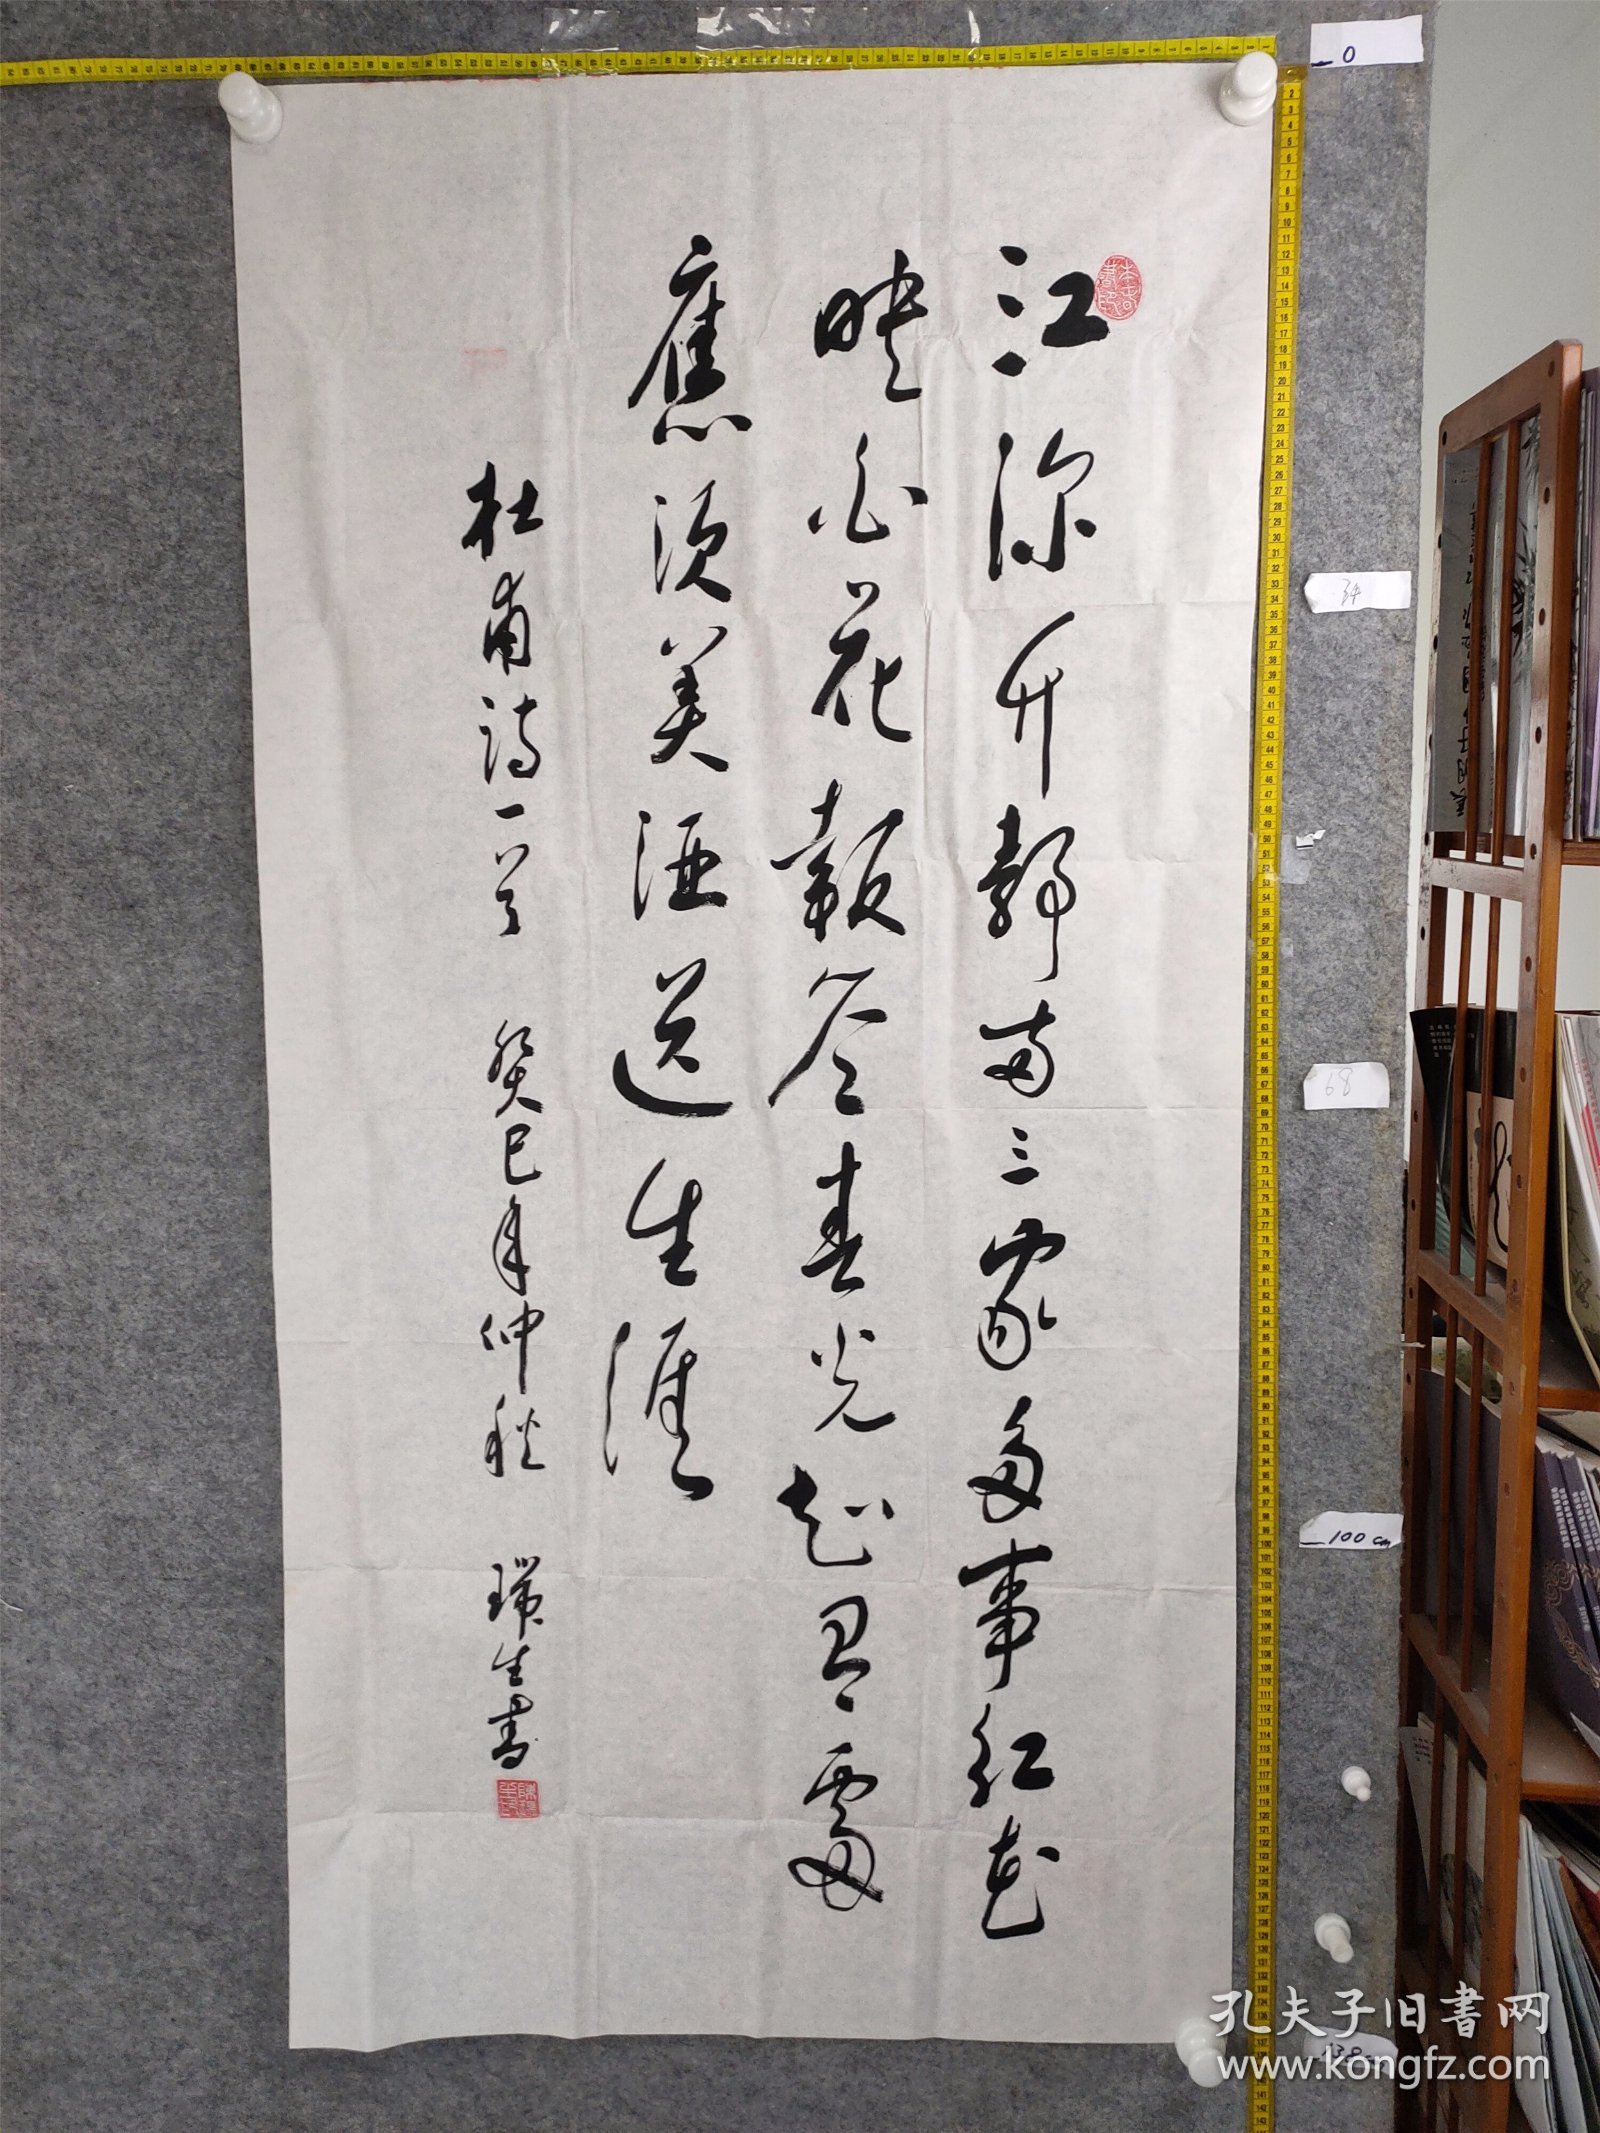 江深竹静两三家多事红花
映白花报答春光知有处
应须美酒送生涯
杜甫诗一首 癸巳年仲秋 瑞生书
0
34
68
100cm
孔夫子旧书网
www.kongfz.com